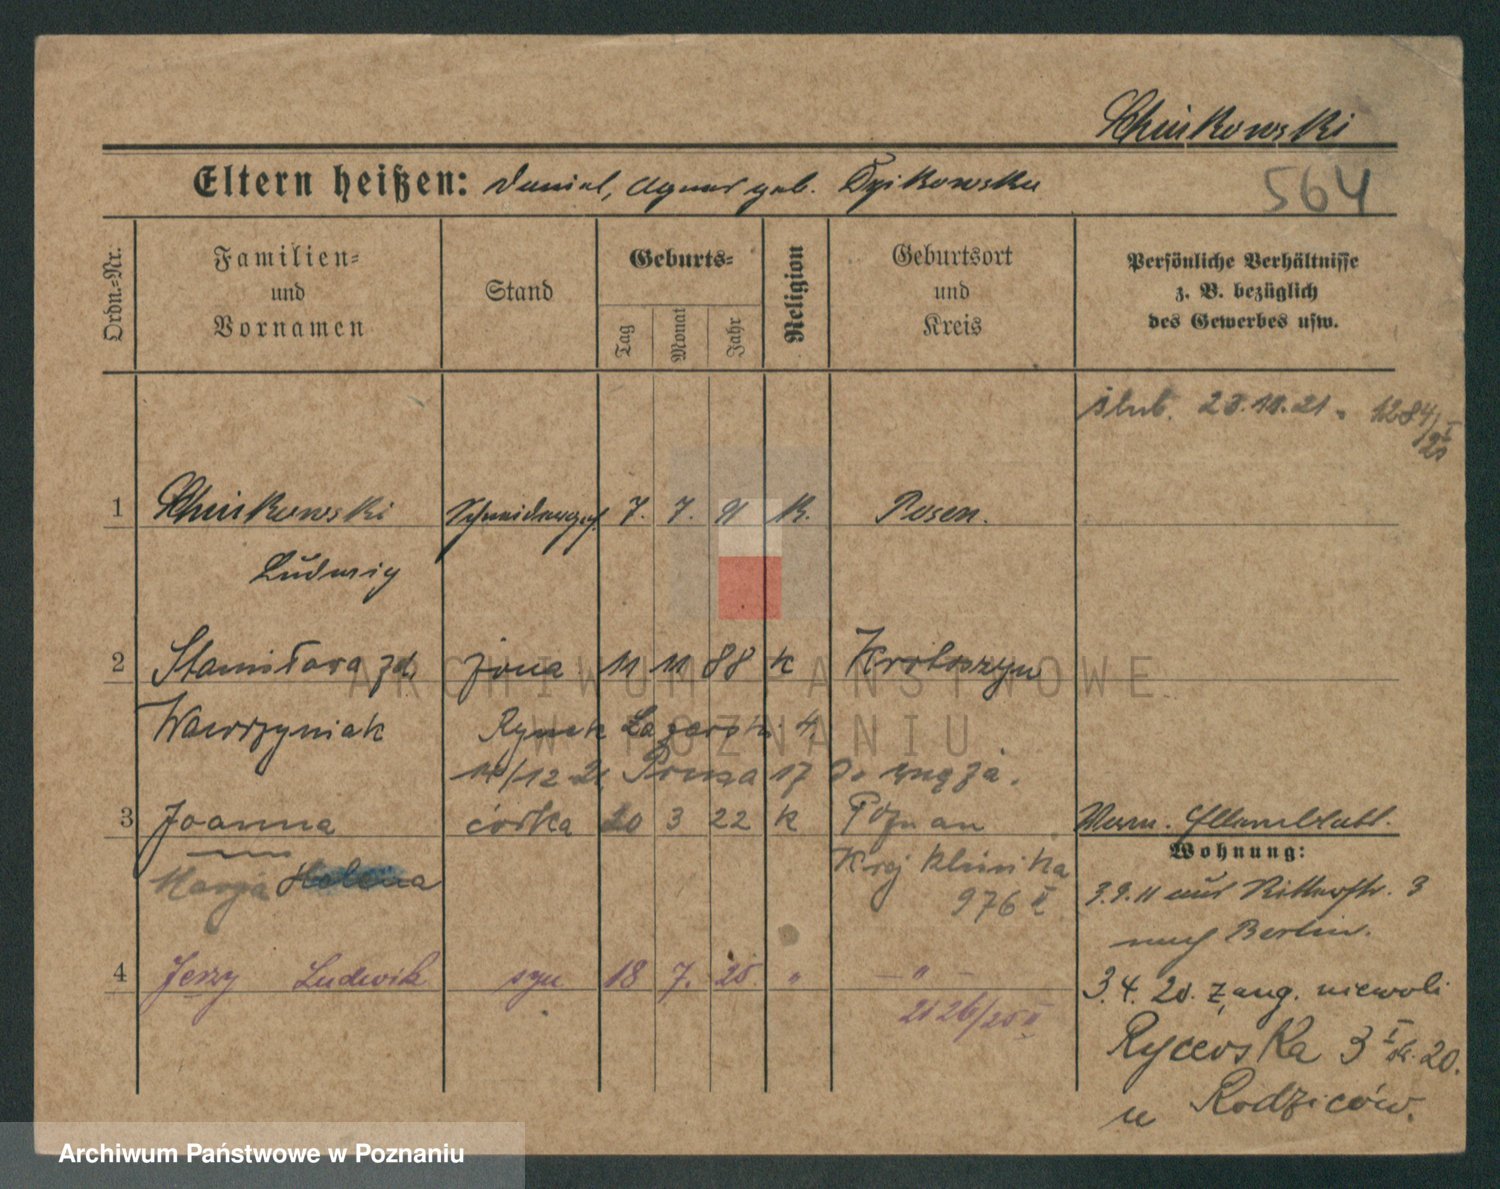 Eltern heißen: Daniel, Agnes geb. Dzikowska
564
Ordn.-Nr.
Familien- und Vornamen
Stand
Geburts-
Tag
Monat
Jahr
Religion
Geburtsort und Kreis
Persönliche Verhältnisse
z. B. bezüglich
des Gewerbes usw.
ślub. 1284/21
1 Schneiderges. 7. 7. 91 K. Posen.
Ludwig
2 Stanisława zd. żona 11 11 88 K Krotoszyn
Wawrzyniak Rynek Łazarski 4.
Prusa 17 do męża.
3 Joanna córka 20 3 22 K Poznan
Marja Helena Kraj Klinika
976 II
4 Jerzy Ludwik syn 18 7. 25. " — " —
2126/25 II
Wohnung:
3.9.11 aus Ritterstr. 3
nach Berlin.
3.4.20. z ang. niewoli
3 I 20.
u Rodziców.
ARCHIWUM PAŃSTWOWE
W POZNANIU
Archiwum Państwowe w Poznaniu